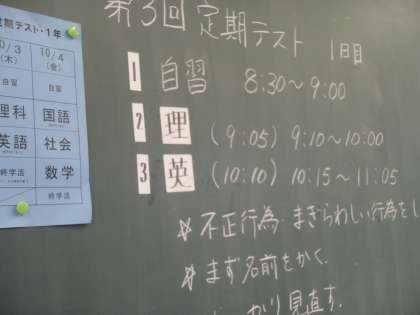 第3回定期テスト 1日目
1 自習 8:30〜9:00
2 理 (9:05) 9:10〜10:00
3 英 (10:10) 10:15〜11:05
※不正行為・まぎらわしい行為をし
※まず名前をかく.
かり見直す.
定期テスト・1年
10/3 10/4
(木) (金)
自習 自習
理科 国語
英語 社会
終学活 数学
終学活